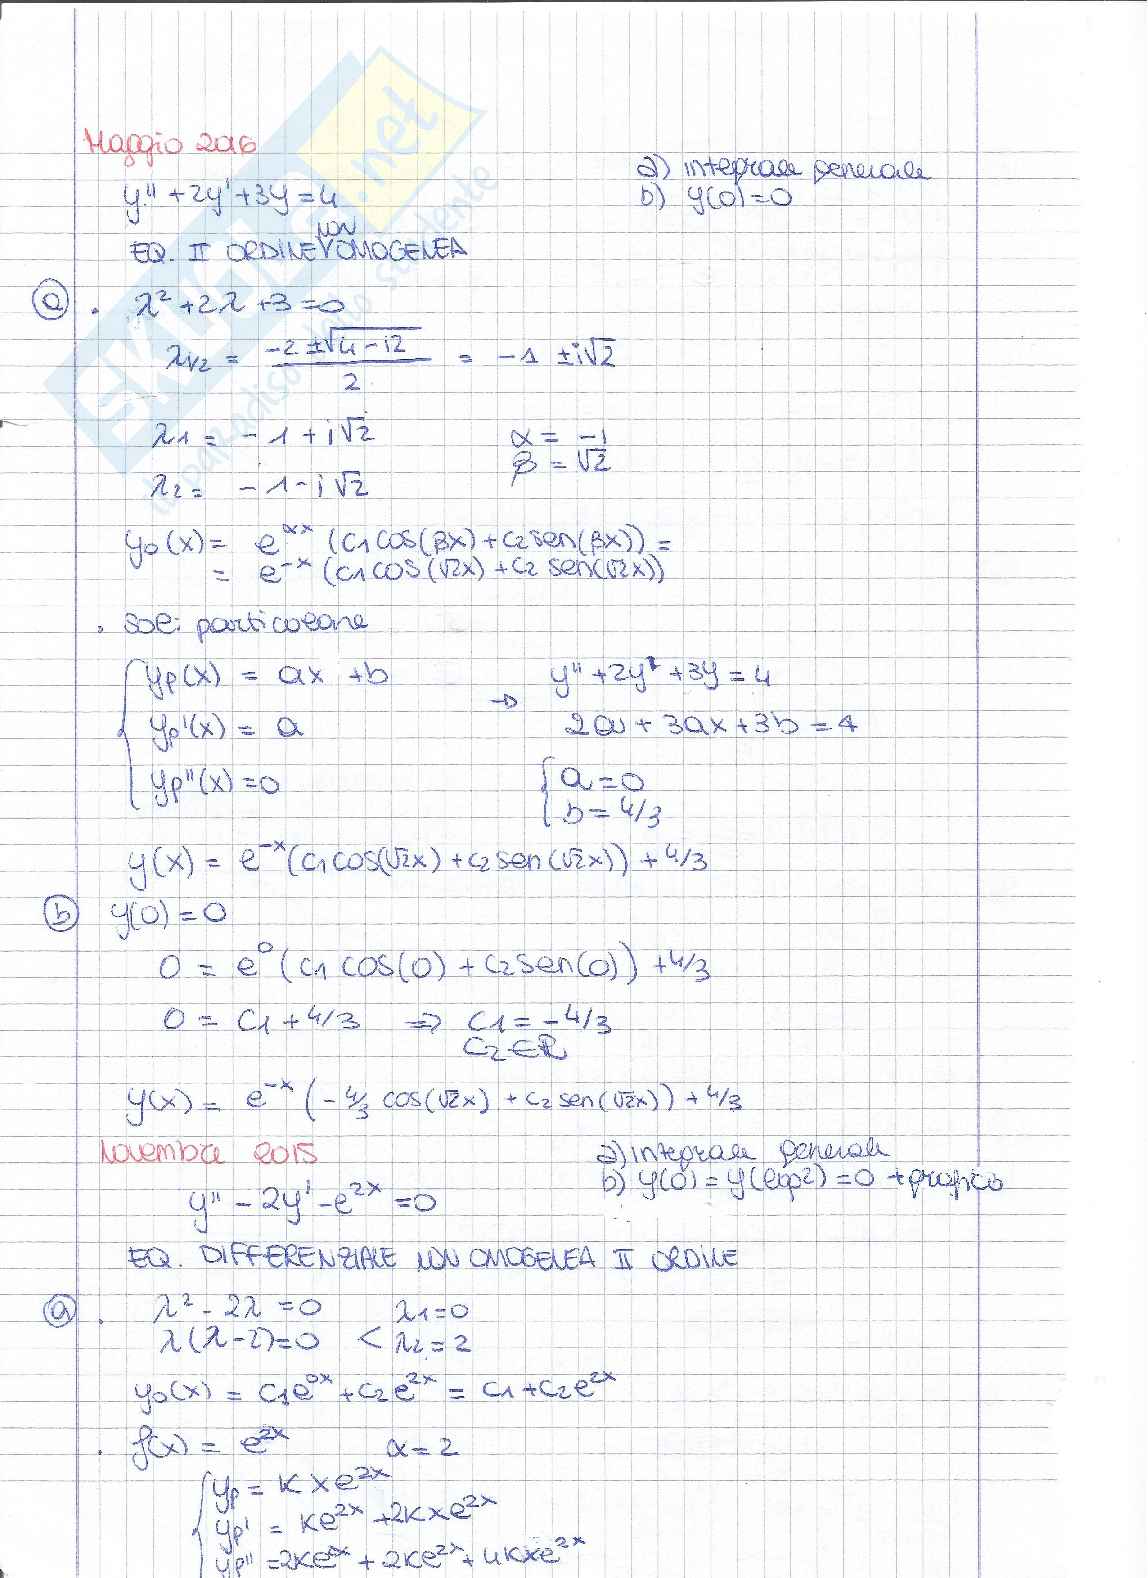 Maggio 2016
y'' + 2y' + 3y = 4
a) integrale generale
b) y(0) = 0
EQ. II ORDINE NON OMOGENEA
a
• λ² + 2λ + 3 = 0
λ1/2 = (-2 ± √(4 - 12)) / 2 = -1 ± i√2
λ1 = -1 + i√2    α = -1
β = √2
λ2 = -1 - i√2
y0(x) = e^αx (c1 cos(βx) + c2 sen(βx)) =
= e^-x (c1 cos(√2x) + c2 sen(√2x))
• sol. particolare
yp(x) = ax + b → y'' + 2y' + 3y = 4
yp'(x) = a    2a + 3ax + 3b = 4
yp''(x) = 0    { a = 0
b = 4/3
y(x) = e^-x (c1 cos(√2x) + c2 sen(√2x)) + 4/3
b y(0) = 0
0 = e^0 (c1 cos(0) + c2 sen(0)) + 4/3
0 = c1 + 4/3 ⇒ c1 = -4/3
c2 ∈ ℝ
y(x) = e^-x (-4/3 cos(√2x) + c2 sen(√2x)) + 4/3
Novembre 2015
a) integrale generale
b) y(0) = y(log2) = 0 + grafico
y'' - 2y' - e^2x = 0
EQ. DIFFERENZIALE NON OMOGENEA II ORDINE
a • λ² - 2λ = 0    λ1 = 0
λ(λ - 2) = 0 < λ2 = 2
y0(x) = c1e^0x + c2e^2x = c1 + c2e^2x
• f(x) = e^2x    α = 2
yp = kxe^2x
yp' = ke^2x + 2kxe^2x
yp'' = 2ke^2x + 2ke^2x + 4kxe^2x
SKUOLA.net
il paradiso dello studente